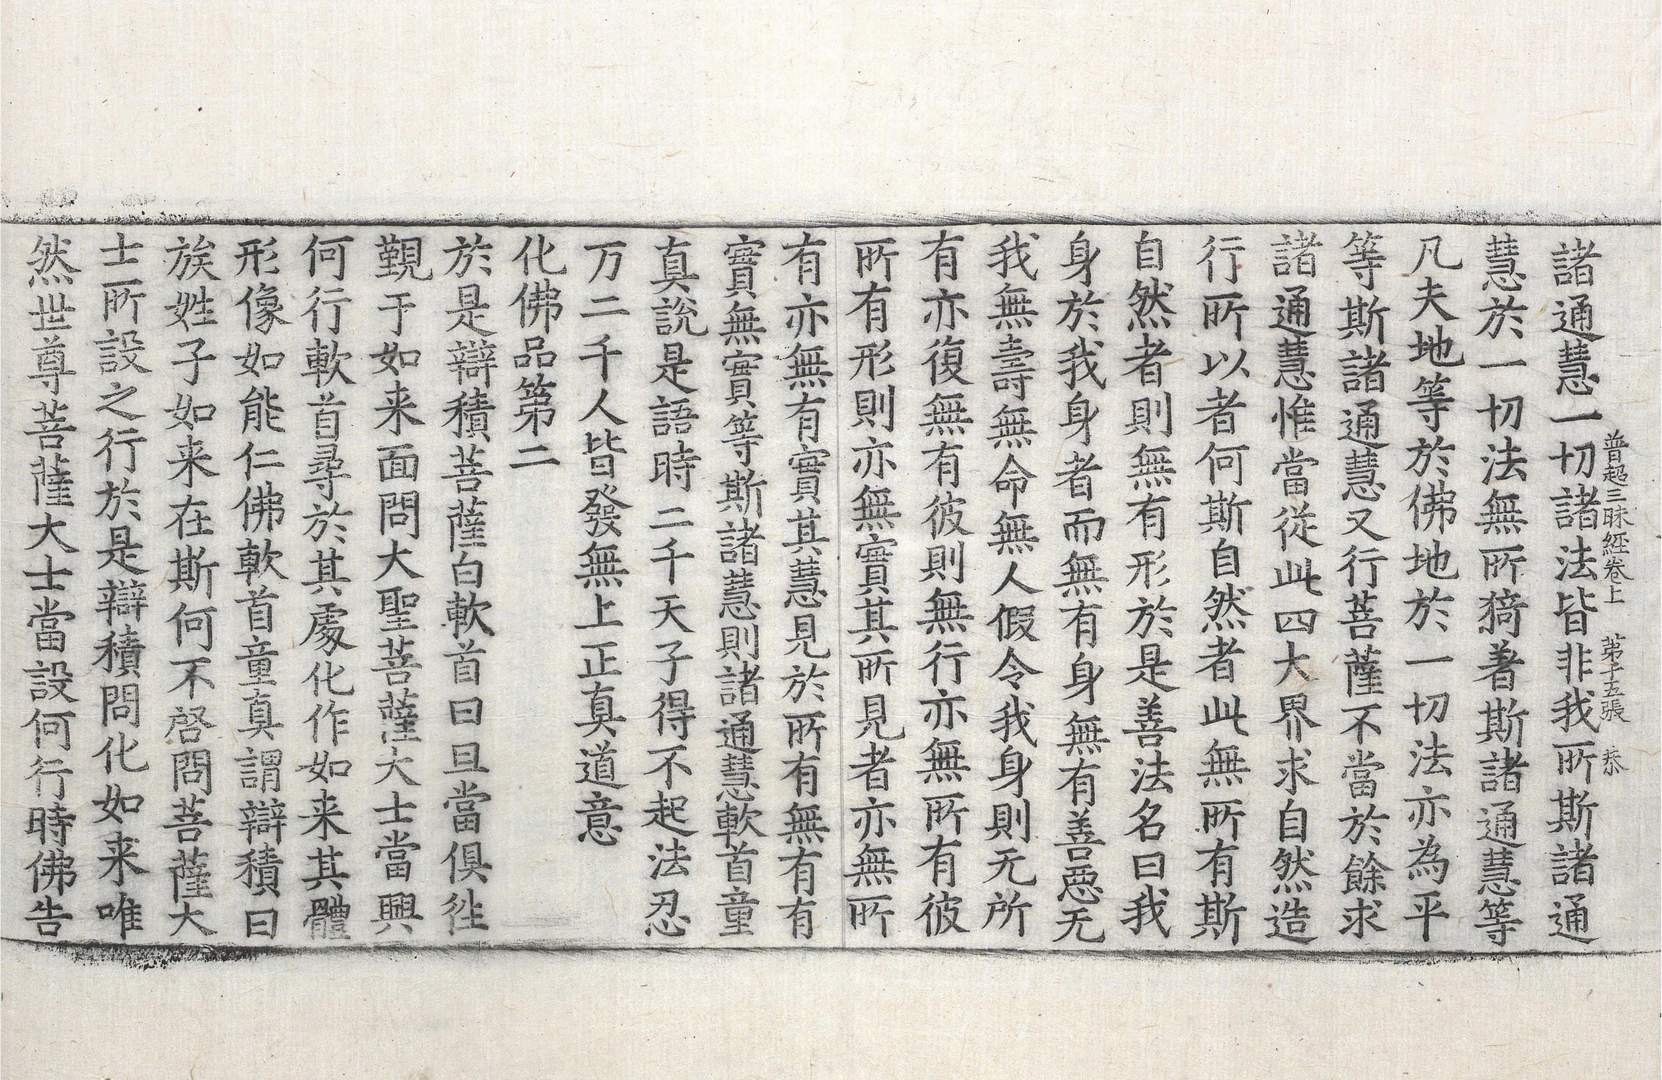 普超三昧經卷上　第十五張　恭
諸通慧一切諸法皆非我所斯諸通
慧於一切法無所猗著斯諸通慧等
凡夫地等於佛地於一切法亦為平
等斯諸通慧又行菩薩不當於餘求
諸通慧惟當從此四大界求自然造
行所以者何斯自然者此無所有斯
自然者則無有形於是善法名曰我
身於我身者而無有身無有善惡无
我無壽無命無人假令我身則无所
有亦復無有彼則無行亦無所有彼
所有形則亦無實其所見者亦無所
有亦無有實其慧見於所有無有有
實無實等斯諸慧則諸通慧軟首童
真說是語時二千天子得不起法忍
万二千人皆發無上正真道意
化佛品第二
於是辯積菩薩白軟首曰且當俱徃
覲于如来面問大聖菩薩大士當興
何行軟首尋於其處化作如来其體
形像如能仁佛軟首童真謂辯積曰
族姓子如来在斯何不啓問菩薩大
士所設之行於是辯積問化如来唯
然世尊菩薩大士當設何行時佛告